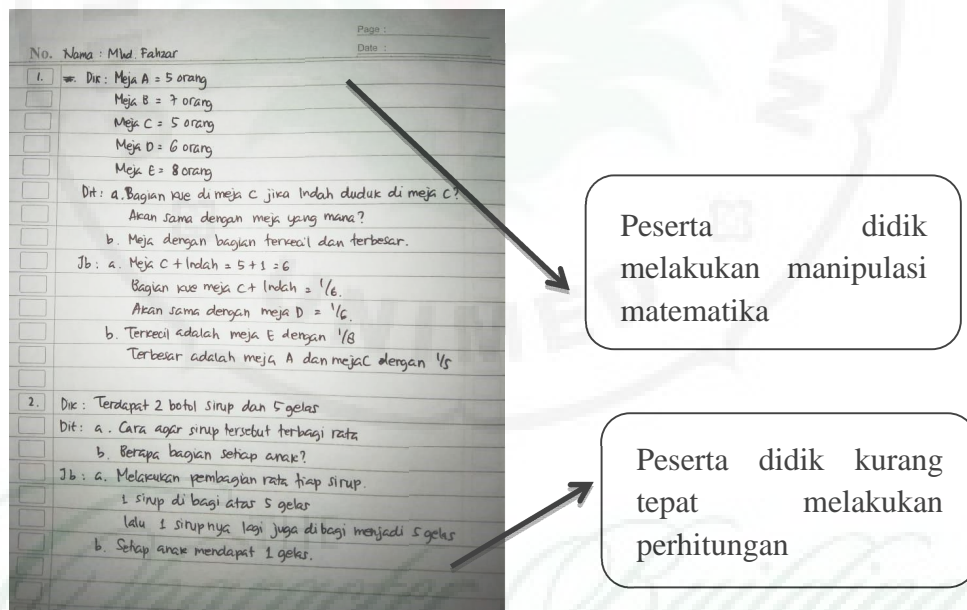 Page :
No. Nama : Mhd. Fahzar
Date :
1. Dik : Meja A = 5 orang
Meja B = 7 orang
Meja C = 5 orang
Meja D = 6 orang
Meja E = 8 orang
Dit : a. Bagian kue di meja C jika Indah duduk di meja C?
Akan sama dengan meja yang mana?
b. Meja dengan bagian terkecil dan terbesar.
Jb : a. Meja C + Indah = 5 + 1 = 6
Bagian kue meja C + Indah = 1/6.
Akan sama dengan meja D = 1/6.
b. Terkecil adalah meja E dengan 1/8
Terbesar adalah meja A dan meja C dengan 1/5
2. Dik : Terdapat 2 botol sirup dan 5 gelas
Dit : a. Cara agar sirup tersebut terbagi rata
b. Berapa bagian setiap anak?
Jb : a. Melakukan pembagian rata tiap sirup.
1 sirup di bagi atas 5 gelas
lalu 1 sirupnya lagi juga dibagi menjadi 5 gelas
b. Setiap anak mendapat 1 gelas.
Peserta didik
melakukan manipulasi
matematika
Peserta didik kurang
tepat melakukan
perhitungan